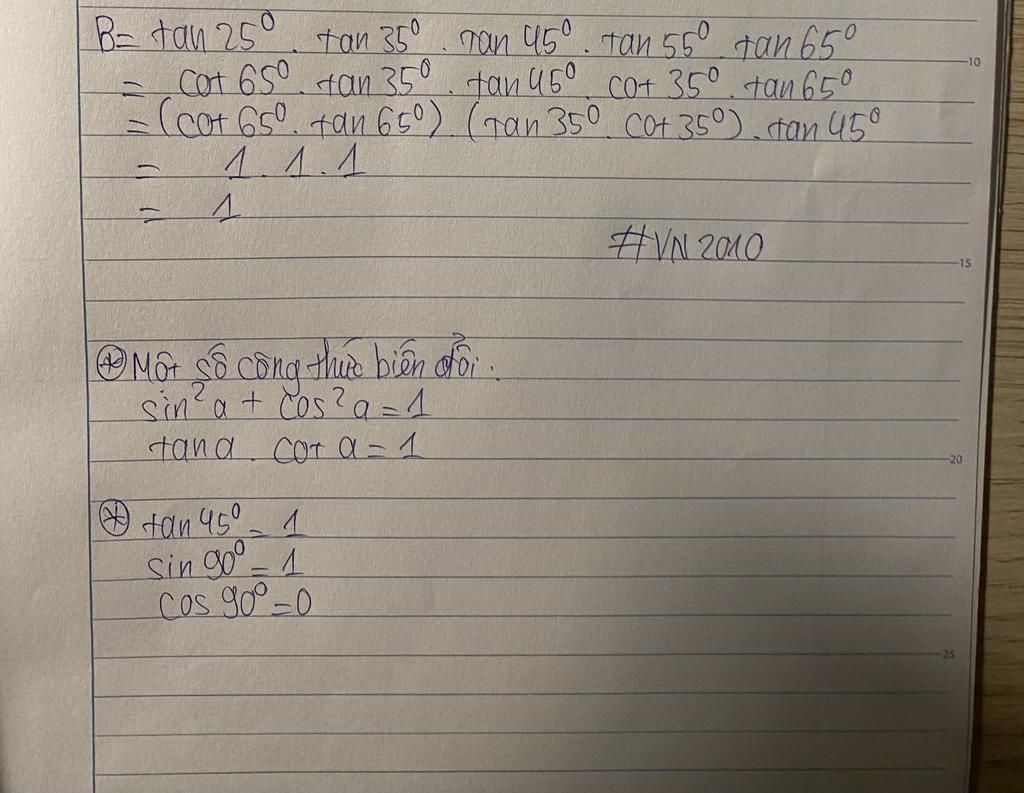 B= tan 25⁰ . tan 35⁰ . tan 45⁰ . tan 55⁰ . tan 65⁰
= cot 65⁰ . tan 35⁰ . tan 45⁰ . cot 35⁰ . tan 65⁰
= (cot 65⁰ . tan 65⁰) . (tan 35⁰ . cot 35⁰) . tan 45⁰
= 1 . 1 . 1
= 1
#VN2010
* Một số công thức biến đổi:
sin² a + cos² a = 1
tan a . cot a = 1
* tan 45⁰ = 1
sin 90⁰ = 1
cos 90⁰ = 0
10
15
20
25